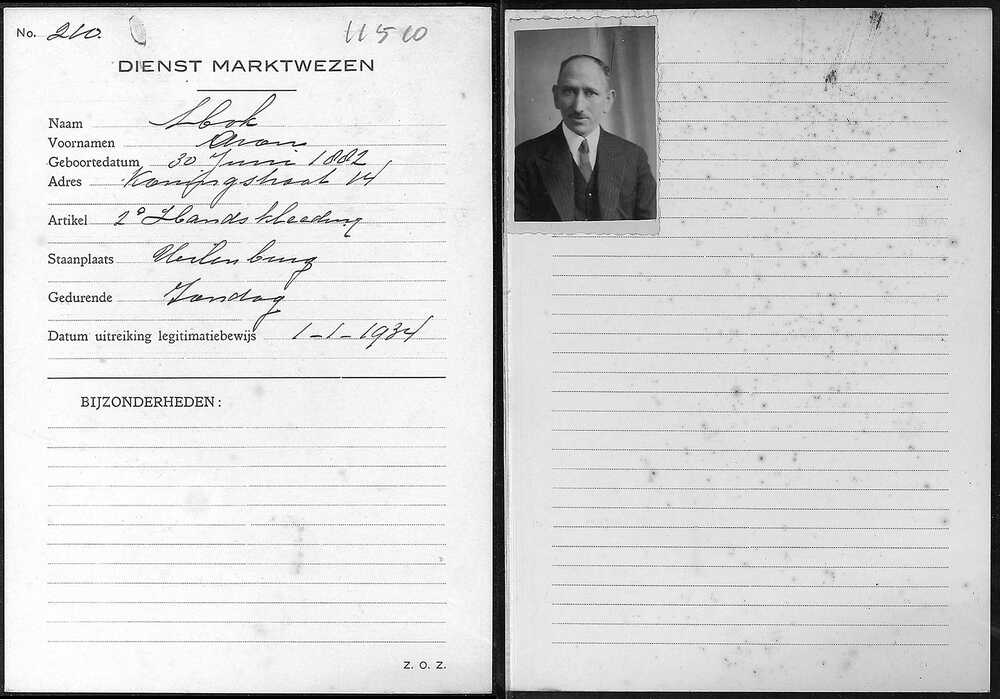 No. 210.
11510
DIENST MARKTWEZEN
Naam Abok
Voornamen Aron
Geboortedatum 30 Juni 1882
Adres Koningstraat 14
Artikel 2e Handskleeding
Staanplaats Uilenburg
Gedurende Zondag
Datum uitreiking legitimatiebewijs 1-1-1934
BIJZONDERHEDEN:
Z. O. Z.